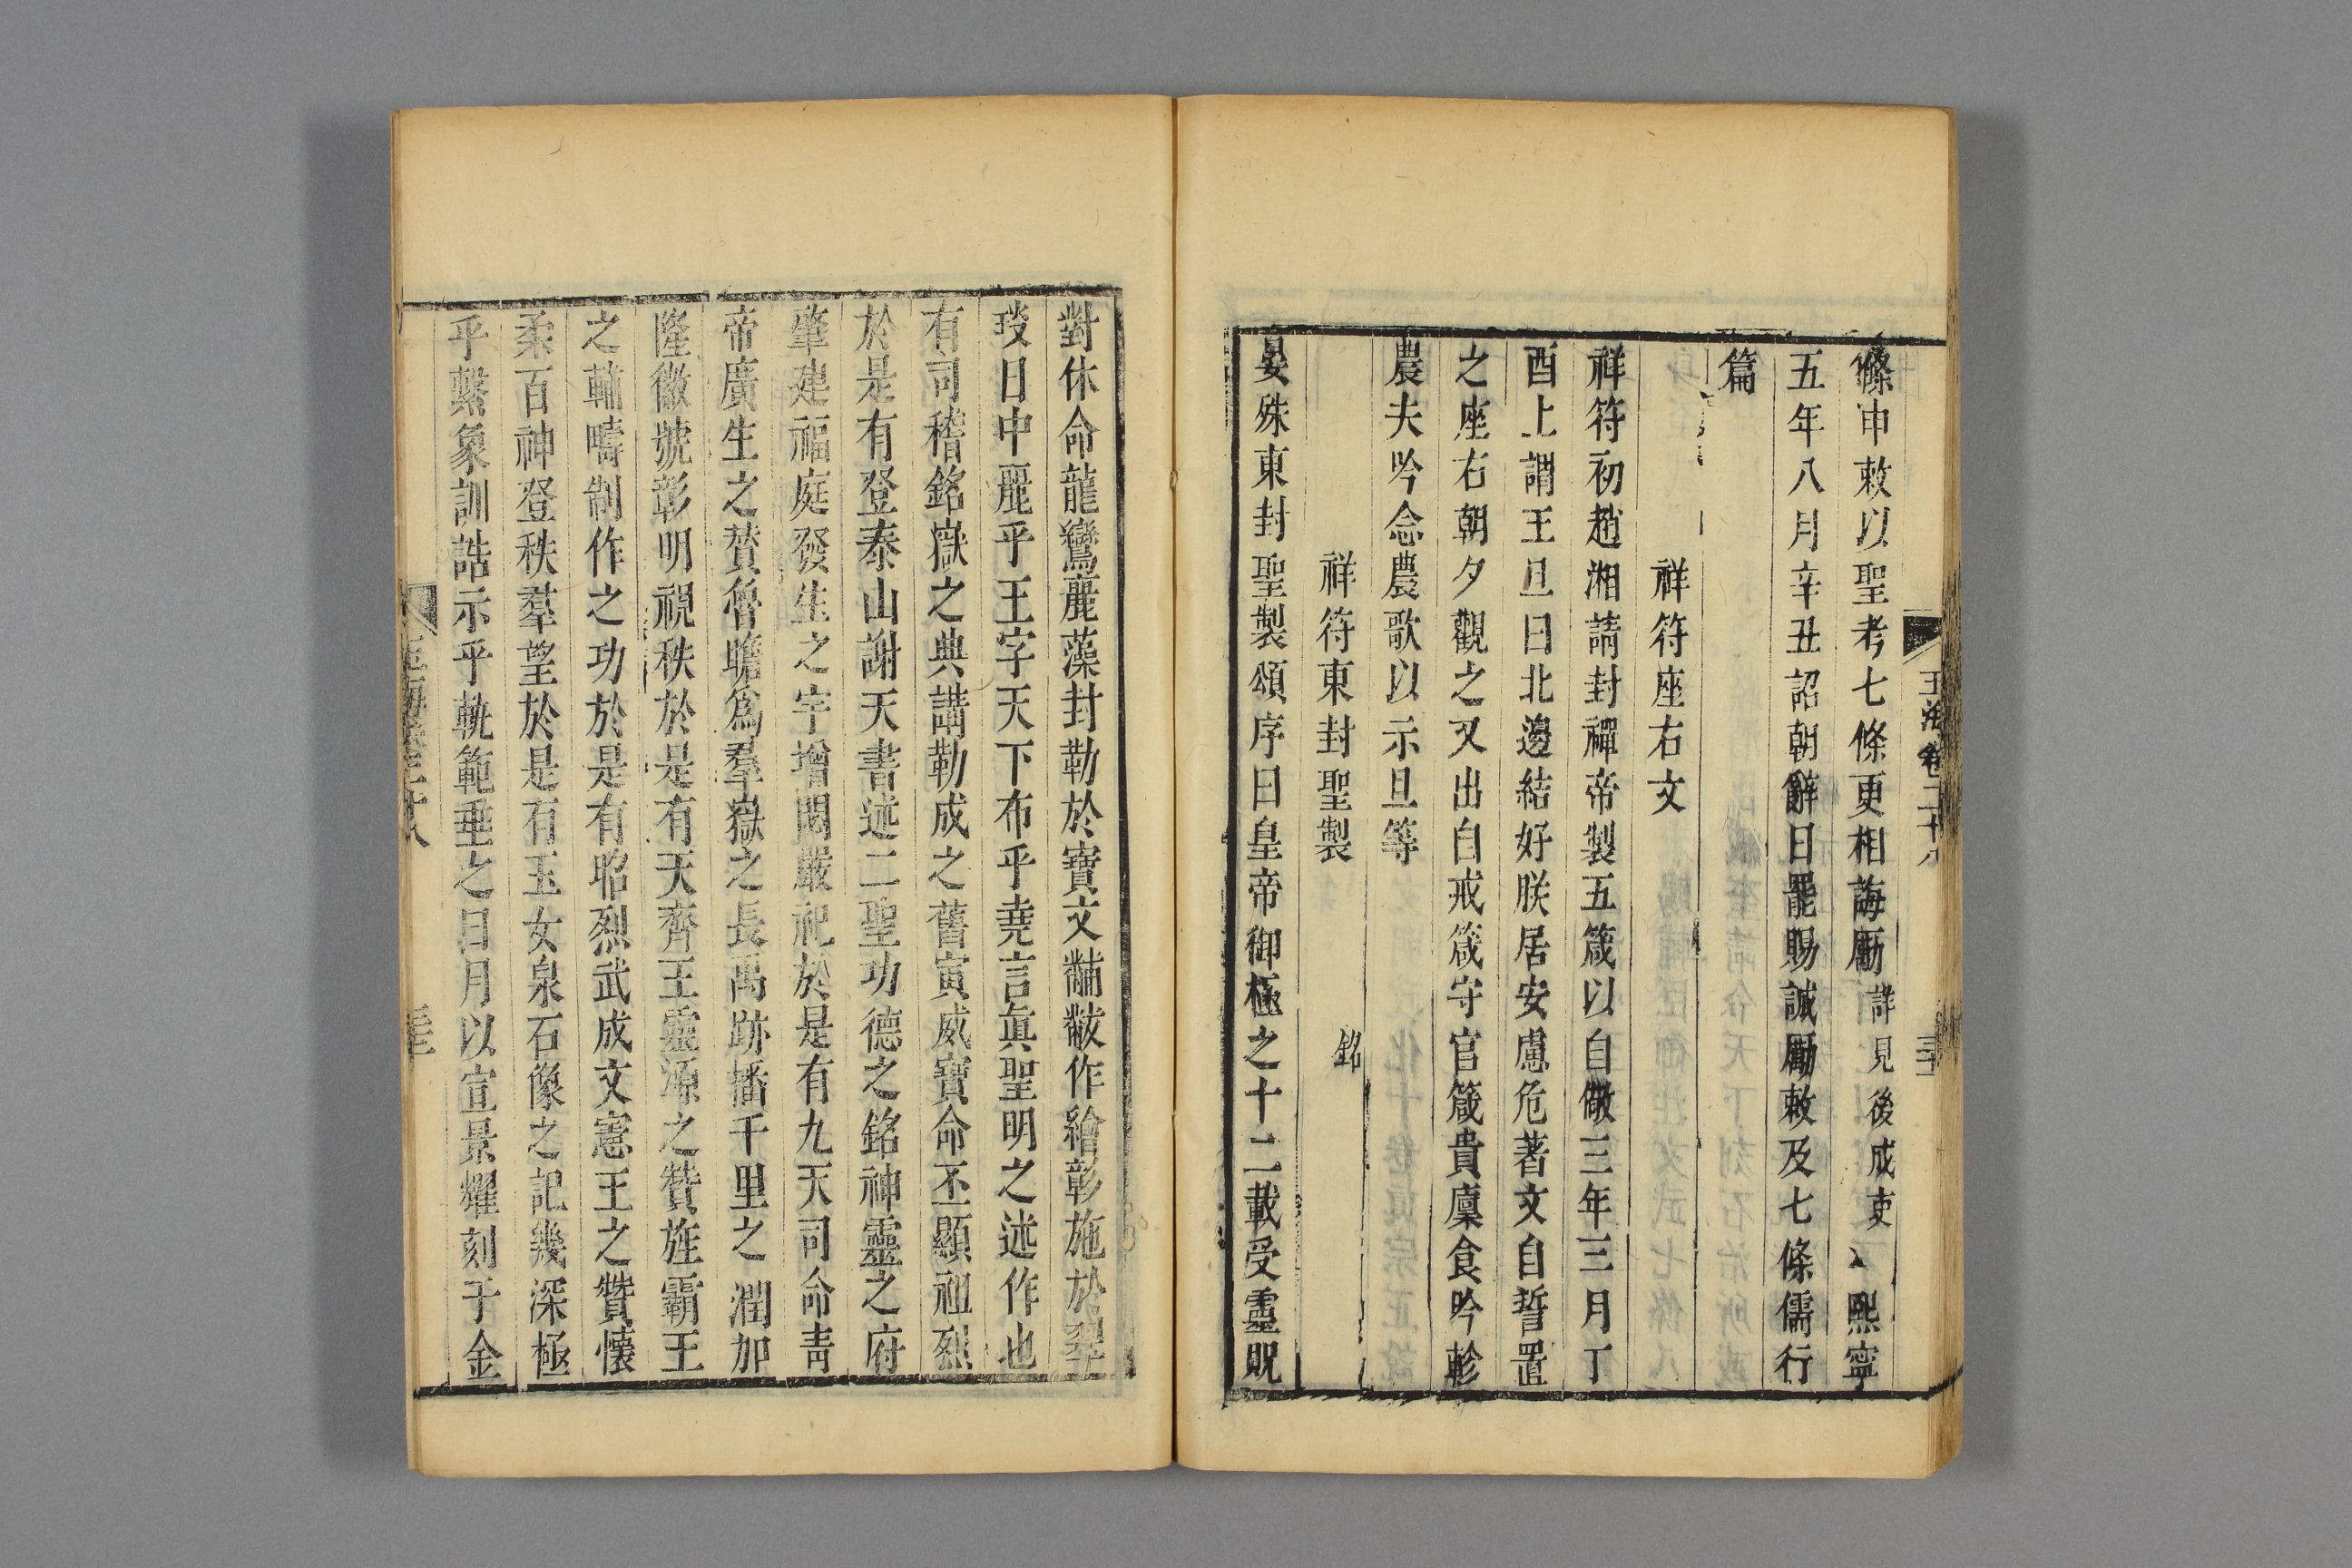 玉海卷二十八
條申敕以聖考七條更相誨勵詳見後戒吏 熙寧
五年八月辛丑詔朝辭日罷賜誡勵敕及七條儒行
篇
祥符座右文
祥符初趙湘請封禪帝製五箴以自儆三年三月丁
酉上謂王旦曰北邊結好朕居安慮危著文自誓置
之座右朝夕觀之又出自戒箴守官箴貴廩食吟軫
農夫吟念農歌以示旦等
祥符東封聖製 銘
晏殊東封聖製頌序曰皇帝御極之十二載受靈貺
對休命龍鸞麗藻封勒於寶文黼黻作繪彰施於翠
琰日中麗乎王字天下布乎堯言眞聖明之述作也
有司稽銘嶽之典講勒成之舊寅威寶命丕顯祖烈
於是有登泰山謝天書述二聖功德之銘神靈之府
肇建福庭發生之宇增閎嚴祀於是有九天司命靑
帝廣生之贊魯瞻爲羣嶽之長禹跡播千里之潤加
隆徽號彰明視秩於是有天齊王靈源之贊旌霸王
之輔疇制作之功於是有昭烈武成文憲王之贊懷
柔百神登秩羣望於是有玉女泉石像之記幾深極
乎繫象訓誥示乎軌範垂之日月以宣景耀刻于金